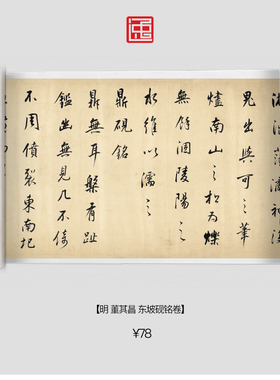 鬼出與可之筆
燼南山之松為煤
無餘涸陵陽之
水維以濡之
鼎硯銘
鼎無耳槃有趾
鑑幽無見几不倚
不周僨裂東南圮
【明 董其昌 东坡砚铭卷】
¥78